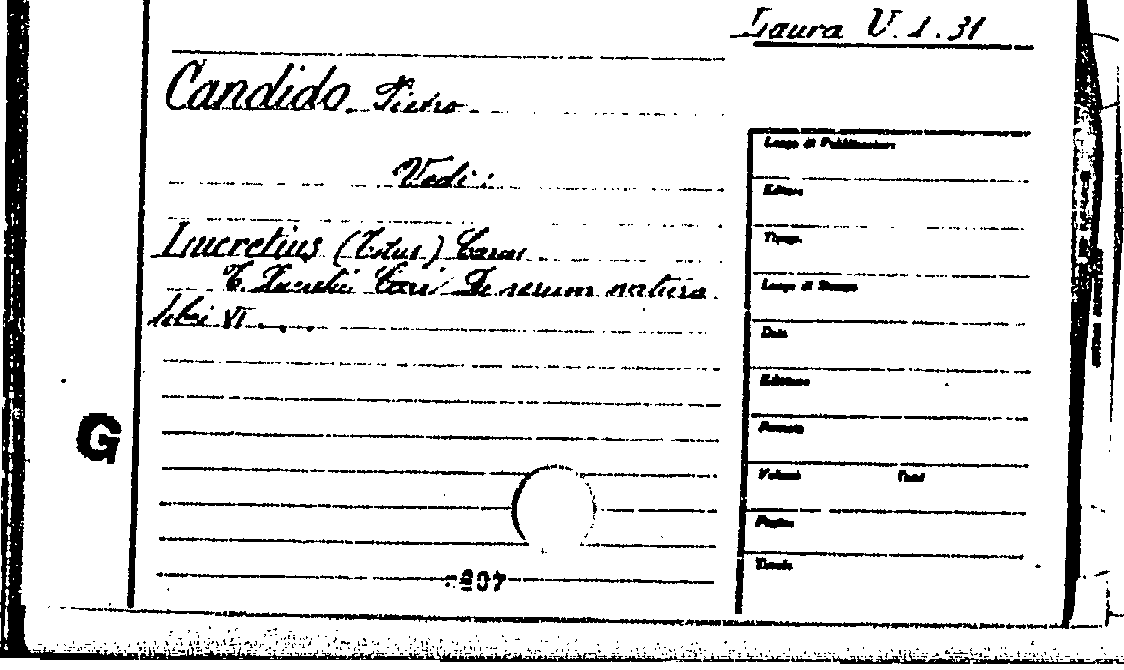 Laura V. 1. 31
Candido Pietro
Vedi:
Lucretius (Titus) Carus
T. Lucretii Cari De rerum natura
libri VI....
Luogo di Pubblicazione
Editore
Tipogr.
Luogo di Stampa
Data
Edizione
Formato
Volumi Tomi
Pagine
G
207